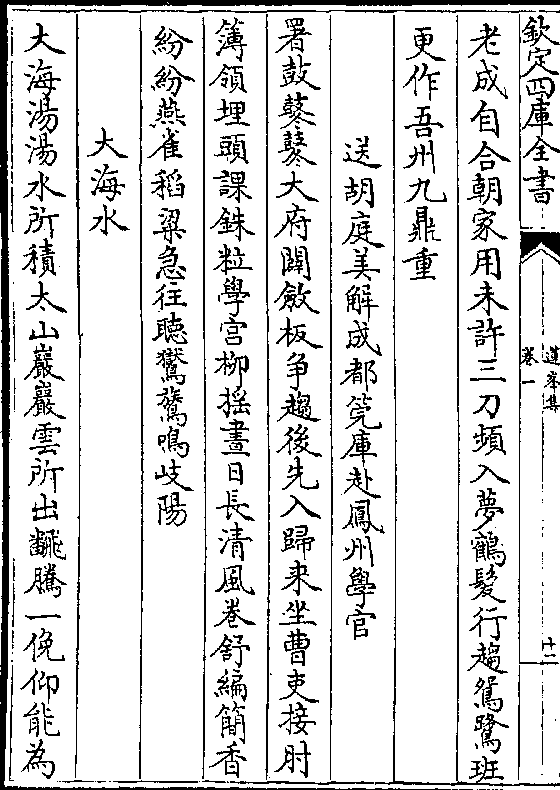 欽定四庫全書
蓮峯集
卷一
十二
老成自合朝家用未許三刀頻入夢鶴髮行趨鴛鷺班
更作吾州九鼎重
送胡庭美解成都筦庫赴鳳州學官
署鼓鼕鼕大府開斂板爭趨後先入歸来坐曹吏接肘
簿領埋頭課銖粒學宫柳揺晝日長清風卷舒編簡香
紛紛燕雀稻粱急往聽鸑鷟鳴岐陽
大海水
大海湯湯水所積太山巖巖雲所出飜騰一俛仰能為